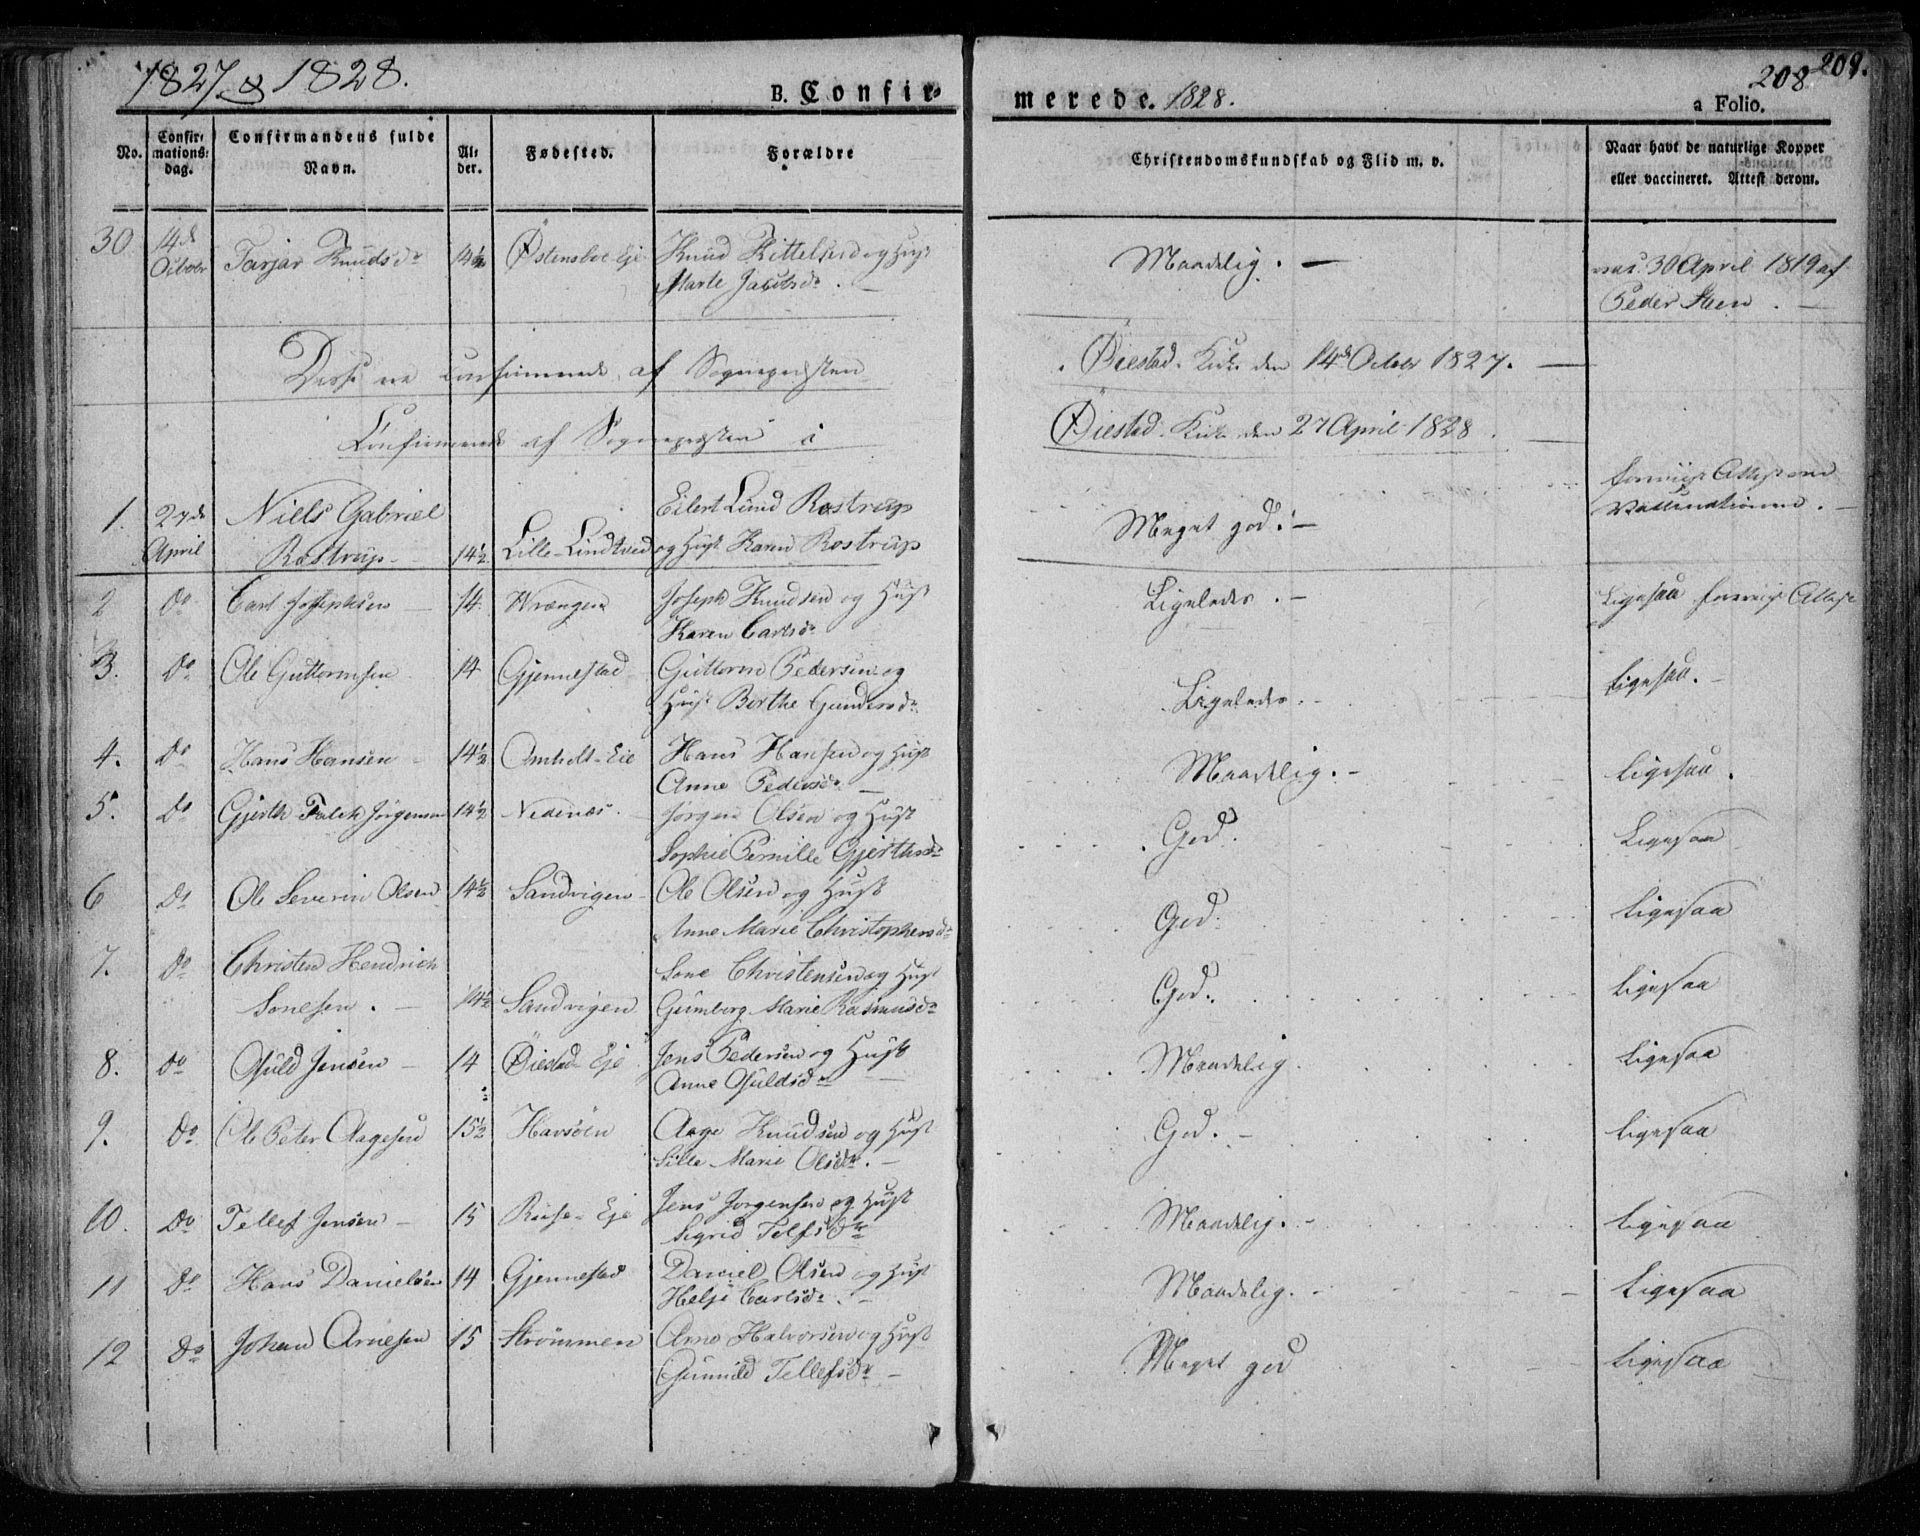 1827 & 1828.
B. Confir-
merede. 1828.
208 209.
a Folio.
No.
Confir-
mations-
dag.
Confirmandens fulde
Navn.
Al-
der.
Fødested.
Forældre
Christendomskundskab og Flid m. v.
Naar havt de naturlige Kopper
eller vaccineret. Attest derom.
30 14de
October Tarjer Knudsdr 14½ Østensboe Eje Knud Kittelsen og Hust
Marte Jacobsdr. —
Maadelig. —
vac. 30 April 1819 af
Peder Steen. —
Disse ere confirmerede af Sognepresten
Øiestad Kirke den 14de October 1827. —
Confirmerede af Sognepresten i
Øiestad Kirke den 27 April 1828.
1. 27de
April Niels Gabriel
Rostrup 14½ Lille-Lindtved Eilert Lund Rostrup
og Hust Karen Rostrup
Meget god. —
foreviist Attest om
Vaccinationen. —
2 Do Carl Josephsen 14 Wrængen Joseph Knudsen og Hust
Karen Carlsdr
Ligeledes. —
Ligesaa foreviist Attest
3. Do Ole Guttormsen 14 Gjennestad Guttorm Pedersen og
Hust Berthe Gundersdr
Ligeledes. —
Ligesaa. —
4. Do Hans Hansen 14½ Omholt-Eie Hans Hansen og Hust
Anne Pedersdr. —
Maadelig. —
Ligesaa.
5. Do Gjerth Falck Jørgensen 14½ Nedenæs. Jørgen Olsen og Hust
Sophie Pernille Gjerthsdr
God.
Ligesaa
6 Do Ole Severin Olsen 14½ Sandvigen Ole Olsen og Hust
Anne Marie Christophersdr
God.
Ligesaa
7. Do Christen Hendrich
Sonesen. — 14½ Sandvigen Sone Christensen og Hust
Gunborg Marie Rasmusdr
God.
Ligesaa
8. Do Osuld Jensen 14 Øiestad Eje Jens Pedersen og Hust
Anne Osuldsdr
Maadelig
Ligesaa
9. Do Ole Peter Aagesen 15½ Havsøen Aage Knudsen og Hust
Sille Marie Olsdr. —
God. —
Ligesaa
10. Do Tellef Jensen 15 Eje Jens Jørgensen og Hust
Sigrid Telfsdr
Maadelig. —
Ligesaa
11 Do Hans Danielsen 14 Gjennestad Daniel Olsen og Hust
Helje Carlsdr. —
Maadelig. —
Ligesaa
12 Do Johan Arnesen 15 Strømmen Arne Halvorsen og Hust
Gunild Tellefsdr —
Meget god
Ligesaa